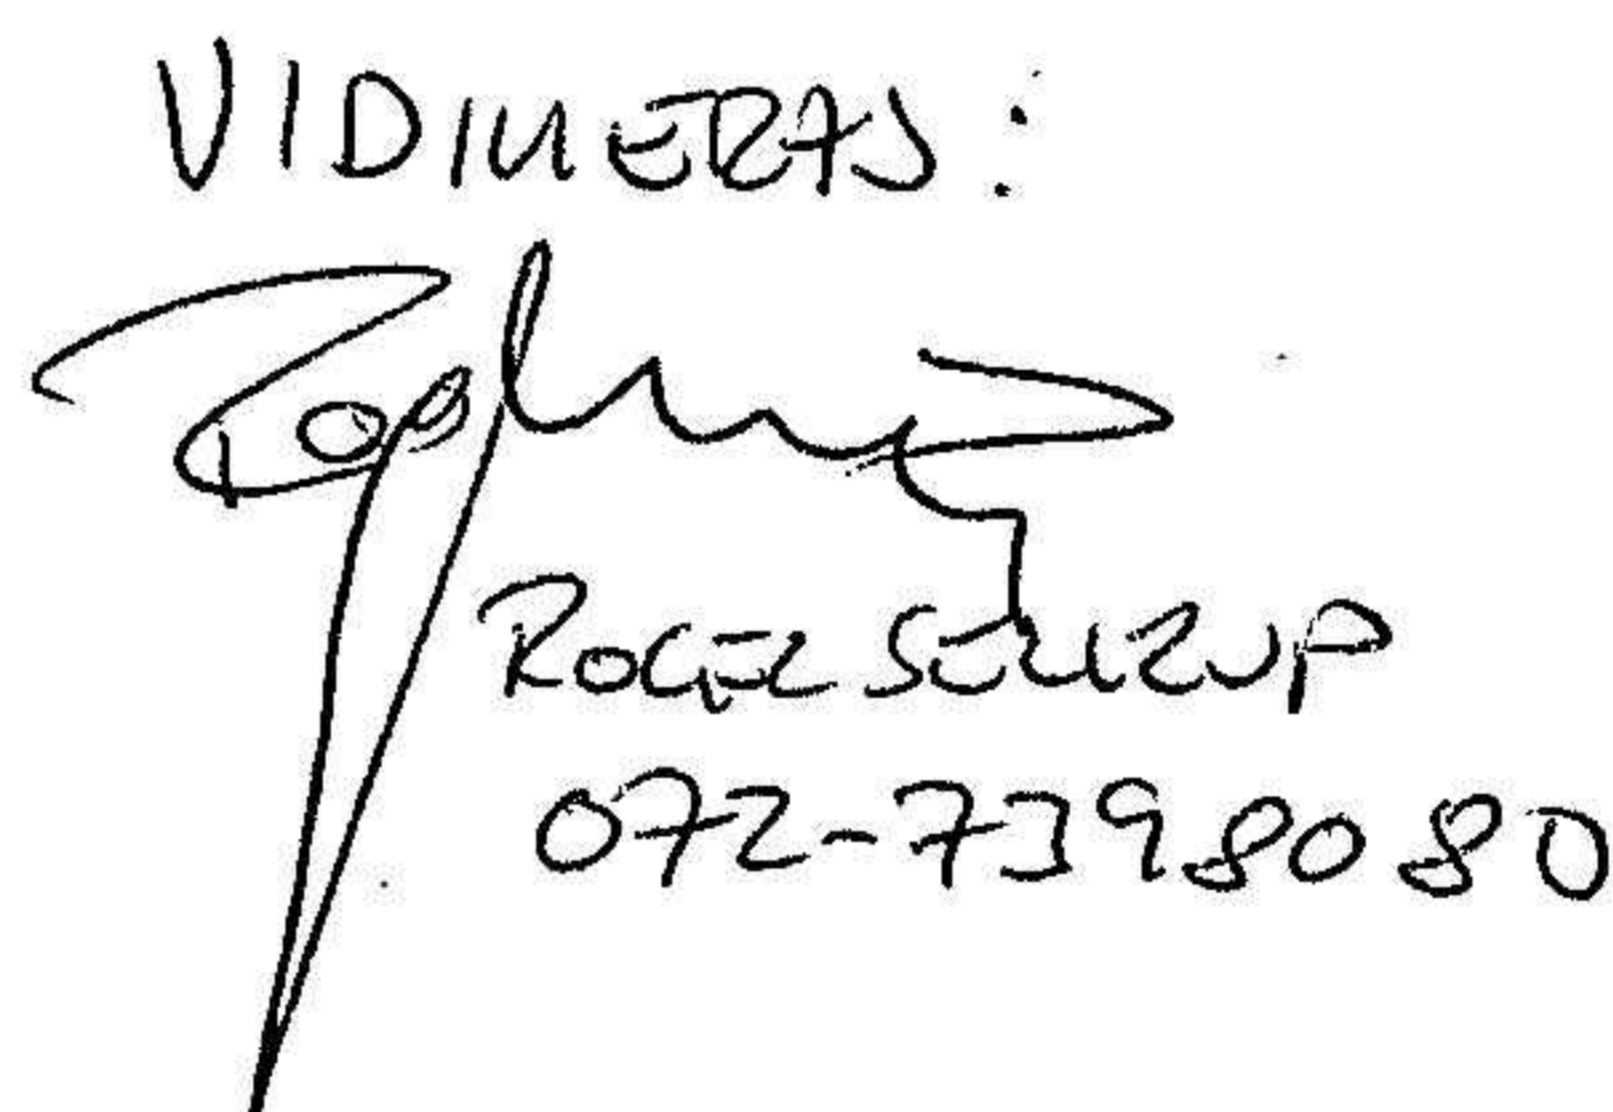 VIDIMERAS:
ROGER SELLRUP
072-7398080